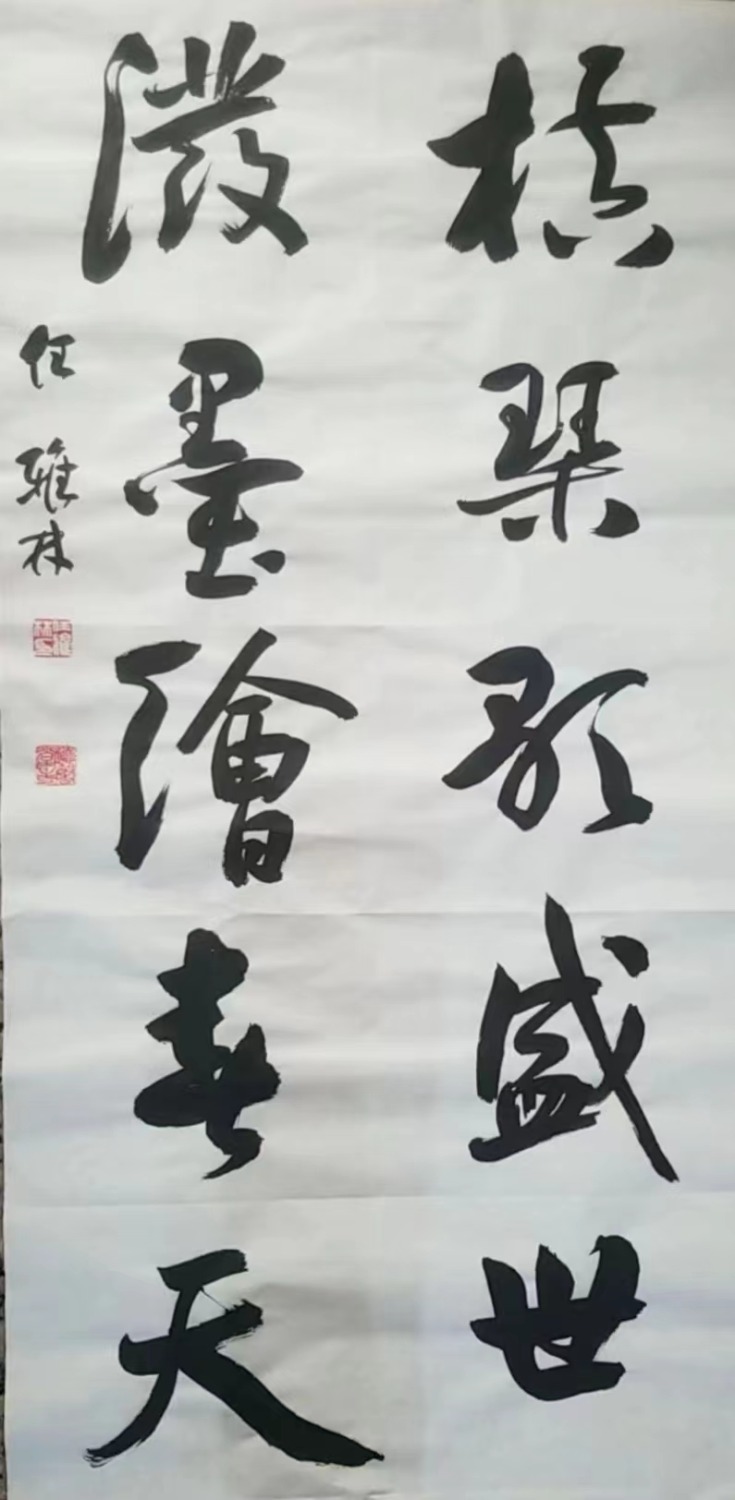 横琴歌盛世
潑墨繪春天
任雅林